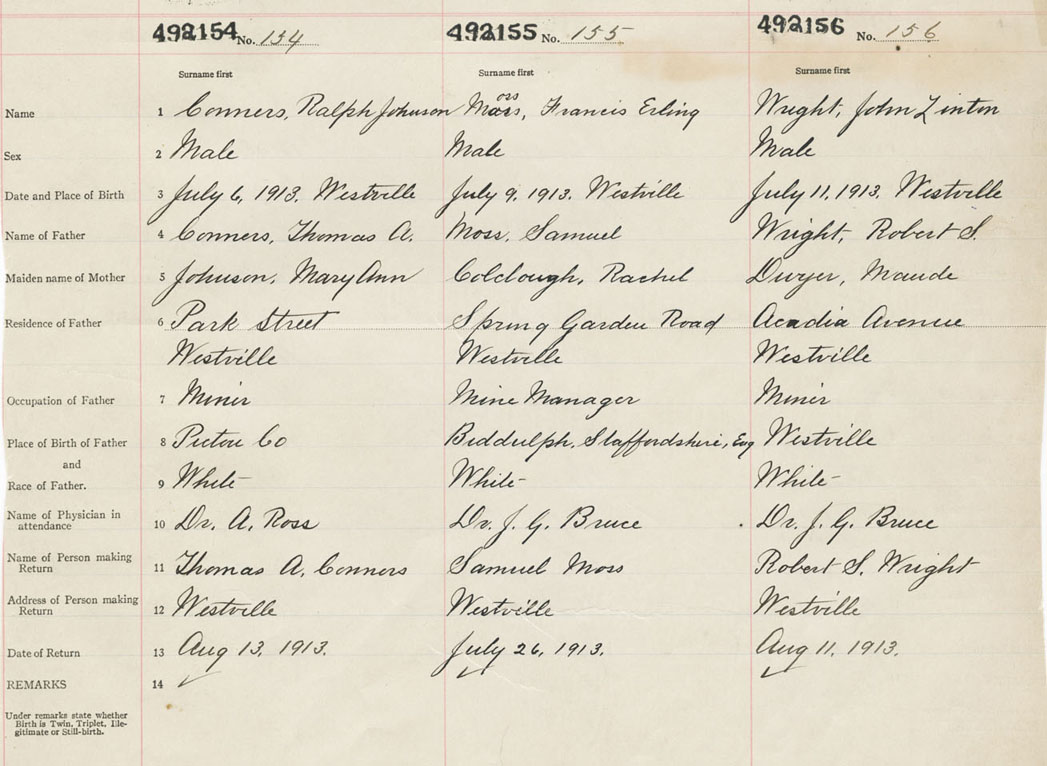 492154 No. 154 492155 No. 155 492156 No. 156
Surname first Surname first Surname first
Name 1 Conners, Ralph Johnson Moss, Francis Erling Wright, John Linton
Sex 2 Male Male Male
Date and Place of Birth 3 July 6, 1913. Westville July 9, 1913. Westville July 11, 1913. Westville
Name of Father 4 Conners, Thomas A. Moss, Samuel Wright, Robert S.
Maiden name of Mother 5 Johnson, Mary Ann Colclough, Rachel Dwyer, Maude
Residence of Father 6 Park Street Spring Garden Road Acadia Avenue
Westville Westville Westville
Occupation of Father 7 Miner Mine Manager Miner
Place of Birth of Father 8 Pictou Co Biddulph, Staffordshire, Eng Westville
and
Race of Father. 9 White White White
Name of Physician in attendance 10 Dr. A. Ross Dr. J. G. Bruce Dr. J. G. Bruce
Name of Person making Return 11 Thomas A. Conners Samuel Moss Robert S. Wright
Address of Person making Return 12 Westville Westville Westville
Date of Return 13 Aug 13, 1913. July 26, 1913. Aug 11, 1913.
REMARKS 14
Under remarks state whether
Birth is Twin, Triplet, Ille-
gitimate or Still-birth.